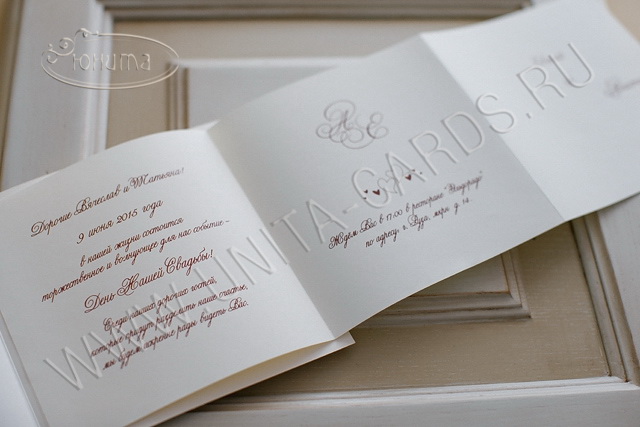 Юнита
Дорогие Вячеслав и Татьяна!
9 июня 2015 года
в нашей жизни состоится
торжественное и волнующее для нас событие –
День Нашей Свадьбы!
Среди наших дорогих гостей,
которые придут разделить наше счастье,
мы будем искренне рады видеть Вас.
Ждем Вас в 17.00 в ресторане
по адресу: г. д. 14.
WWW.UNITA-CARDS.RU